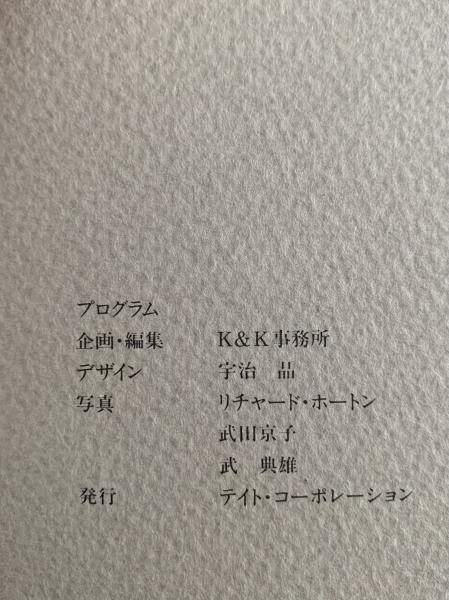 プログラム
企画・編集　K&K事務所
デザイン　宇治　晶
写真　リチャード・ホートン
武田京子
武　典雄
発行　テイト・コーポレーション